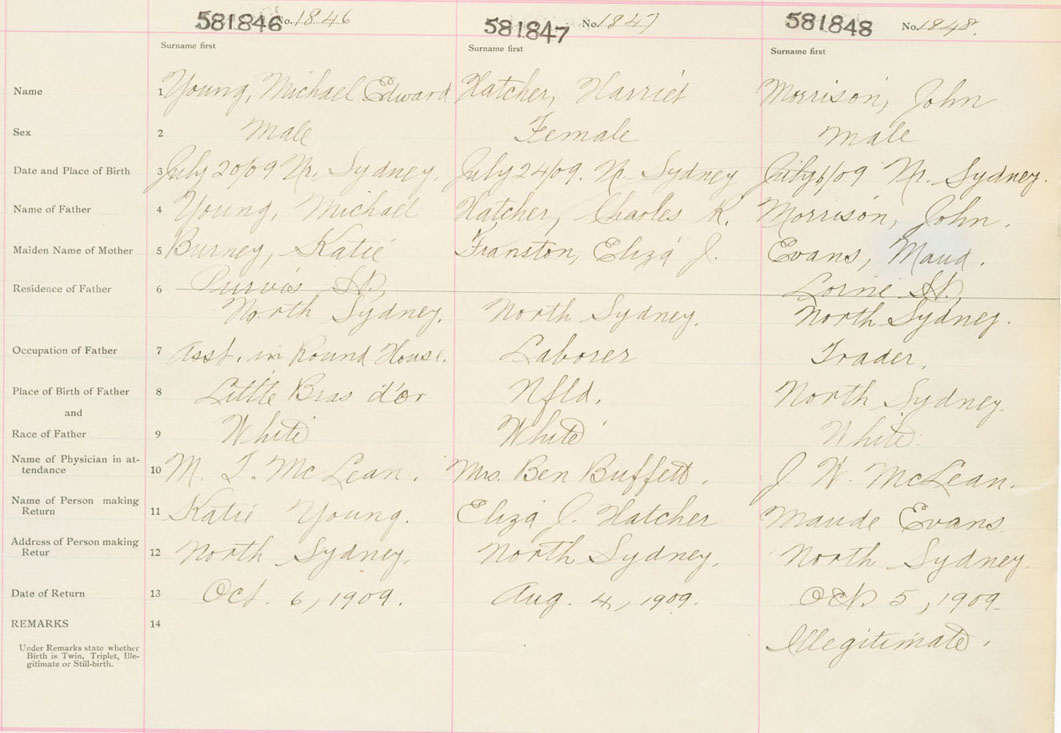 581846 No. 1846 581847 No. 1847 581848 No. 1848.
Surname first Surname first Surname first
Name 1 Young, Michael Edward Hatcher, Harriet Morrison, John
Sex 2 Male Female Male
Date and Place of Birth 3 July 20/09 Nr. Sydney. July 24/09. Nr Sydney July 6/09 Nr. Sydney.
Name of Father 4 Young, Michael Hatcher, Charles R. Morrison, John.
Maiden Name of Mother 5 Burney, Katie Eliza J. Evans, Maud.
Residence of Father 6 Purvis St, Lorne St,
North Sydney. North Sydney. North Sydney.
Occupation of Father 7 Asst. in Round House. Laborer Trader.
Place of Birth of Father 8 Little Bras d'or Nfld. North Sydney.
and
Race of Father 9 White White White.
Name of Physician in at-
tendance 10 M. T. McLean. Mrs. Ben Buffett. J. W. McLean.
Name of Person making
Return 11 Katie Young. Eliza J. Hatcher Maude Evans
Address of Person making
Retur 12 North Sydney. North Sydney. North Sydney.
Date of Return 13 Oct. 6, 1909. Aug. 4, 1909. Oct 5, 1909
REMARKS 14
Illegitimate.
Under Remarks state whether
Birth is Twin, Triplet, Ille-
gitimate or Still-birth.